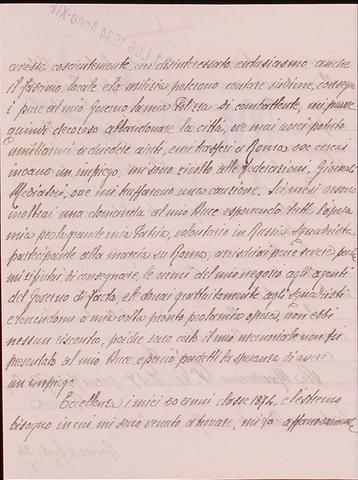 LUG 1934 Anno XII
avesse coscientemente, con disinteressato entusiasmo, anche
il fascismo locale e la milizia poterono contare su di me, consegnai
pure al mio Governo la mia Polizza di combattente, mi parve
quindi decoroso abbandonare la città, ove mai avrei potuto
umiliarmi a chiedere aiuti, e mi trasferii a Roma ove cercai
invano un impiego, mi sono rivolto alle federazioni, Giornali
Mediatori, ove mi truffarono una cauzione. Sei mesi or sono
inoltrai una domanda al mio Duce esponendo tutta l'opera
mia per la grande mia Patria, volontario in Russia squadrista
partecipante alla marcia su Roma, arrischiai pene severe perchè
mi rifiutai di consegnare le armi del mio negozio agli agenti
del Governo di Facta, e le donai gratuitamente agli squadristi
tenendomi a mia volta pronto per la mia opera, non ebbi
nessun riscontro, poichè sono certo il mio memoriale non fu
presentato al mio Duce, e perciò perdetti la speranza di avere
un impiego.
Eccellenza i miei 60 anni classe 1874, e l'estremo
bisogno in cui mi sono venuto a trovare, mi fa affannosamente